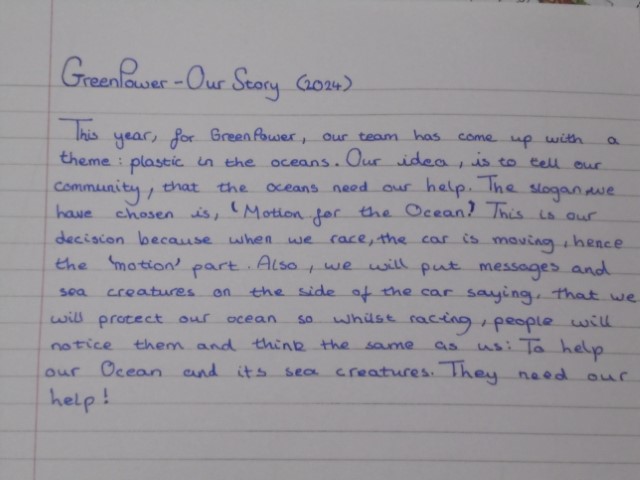 GreenPower - Our Story (2024)
This year, for GreenPower, our team has come up with a
theme: plastic in the oceans. Our idea, is to tell our
community, that the oceans need our help. The slogan we
have chosen is, 'Motion for the Ocean!' This is our
decision because when we race, the car is moving, hence
the 'motion' part. Also, we will put messages and
sea creatures on the side of the car saying, that we
will protect our ocean so whilst racing, people will
notice them and think the same as us: To help
our Ocean and its sea creatures. They need our
help!